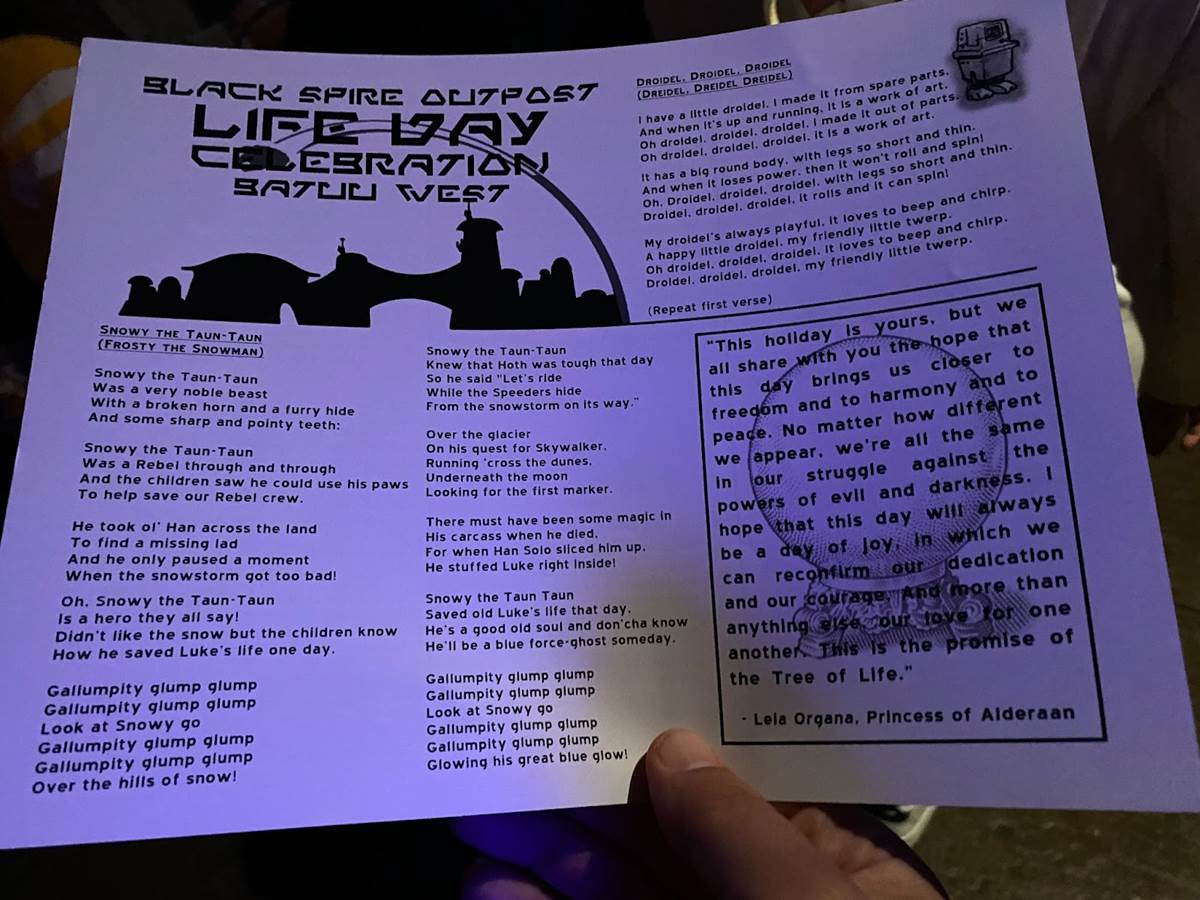 BLACK SPIRE OUTPOST
LIFE DAY
CELEBRATION
BATUU WEST
Snowy the Taun-Taun
(Frosty the Snowman)
Snowy the Taun-Taun
Was a very noble beast
With a broken horn and a furry hide
And some sharp and pointy teeth;
Snowy the Taun-Taun
Was a Rebel through and through
And the children saw he could use his paws
To help save our Rebel crew.
He took ol' Han across the land
To find a missing lad
And he only paused a moment
When the snowstorm got too bad!
Oh, Snowy the Taun-Taun
Is a hero they all say!
Didn't like the snow but the children know
How he saved Luke's life one day.
Gallumpity glump glump
Gallumpity glump glump
Look at Snowy go
Gallumpity glump glump
Gallumpity glump glump
Over the hills of snow!
Snowy the Taun-Taun
Knew that Hoth was tough that day
So he said "Let's ride
While the Speeders hide
From the snowstorm on its way."
Over the glacier
On his quest for Skywalker,
Running 'cross the dunes,
Underneath the moon
Looking for the first marker.
There must have been some magic in
His carcass when he died,
For when Han Solo sliced him up,
He stuffed Luke right inside!
Snowy the Taun Taun
Saved old Luke's life that day,
He's a good old soul and don'cha know
He'll be a blue force-ghost someday.
Gallumpity glump glump
Gallumpity glump glump
Look at Snowy go
Gallumpity glump glump
Gallumpity glump glump
Glowing his great blue glow!
Droidel, Droidel, Droidel
(Dreidel, Dreidel Dreidel)
I have a little droidel, I made it from spare parts,
And when it's up and running, it is a work of art.
Oh droidel, droidel, droidel, I made it out of parts,
Oh droidel, droidel, droidel, it is a work of art.
It has a big round body, with legs so short and thin,
And when it loses power, then it won't roll and spin!
Oh, Droidel, droidel, droidel, with legs so short and thin.
Droidel, droidel, droidel, it rolls and it can spin!
My droidel's always playful, it loves to beep and chirp,
A happy little droidel, my friendly little twerp.
Oh droidel, droidel, droidel, it loves to beep and chirp,
Droidel, droidel, droidel, my friendly little twerp.
(Repeat first verse)
"This holiday is yours, but we
all share with you the hope that
this day brings us closer to
freedom and to harmony and to
peace. No matter how different
we appear, we're all the same
in our struggle against the
powers of evil and darkness. I
hope that this day will always
be a day of joy, in which we
can reconfirm our dedication
and our courage. And more than
anything else, our love for one
another. This is the promise of
the Tree of Life."
- Leia Organa, Princess of Alderaan